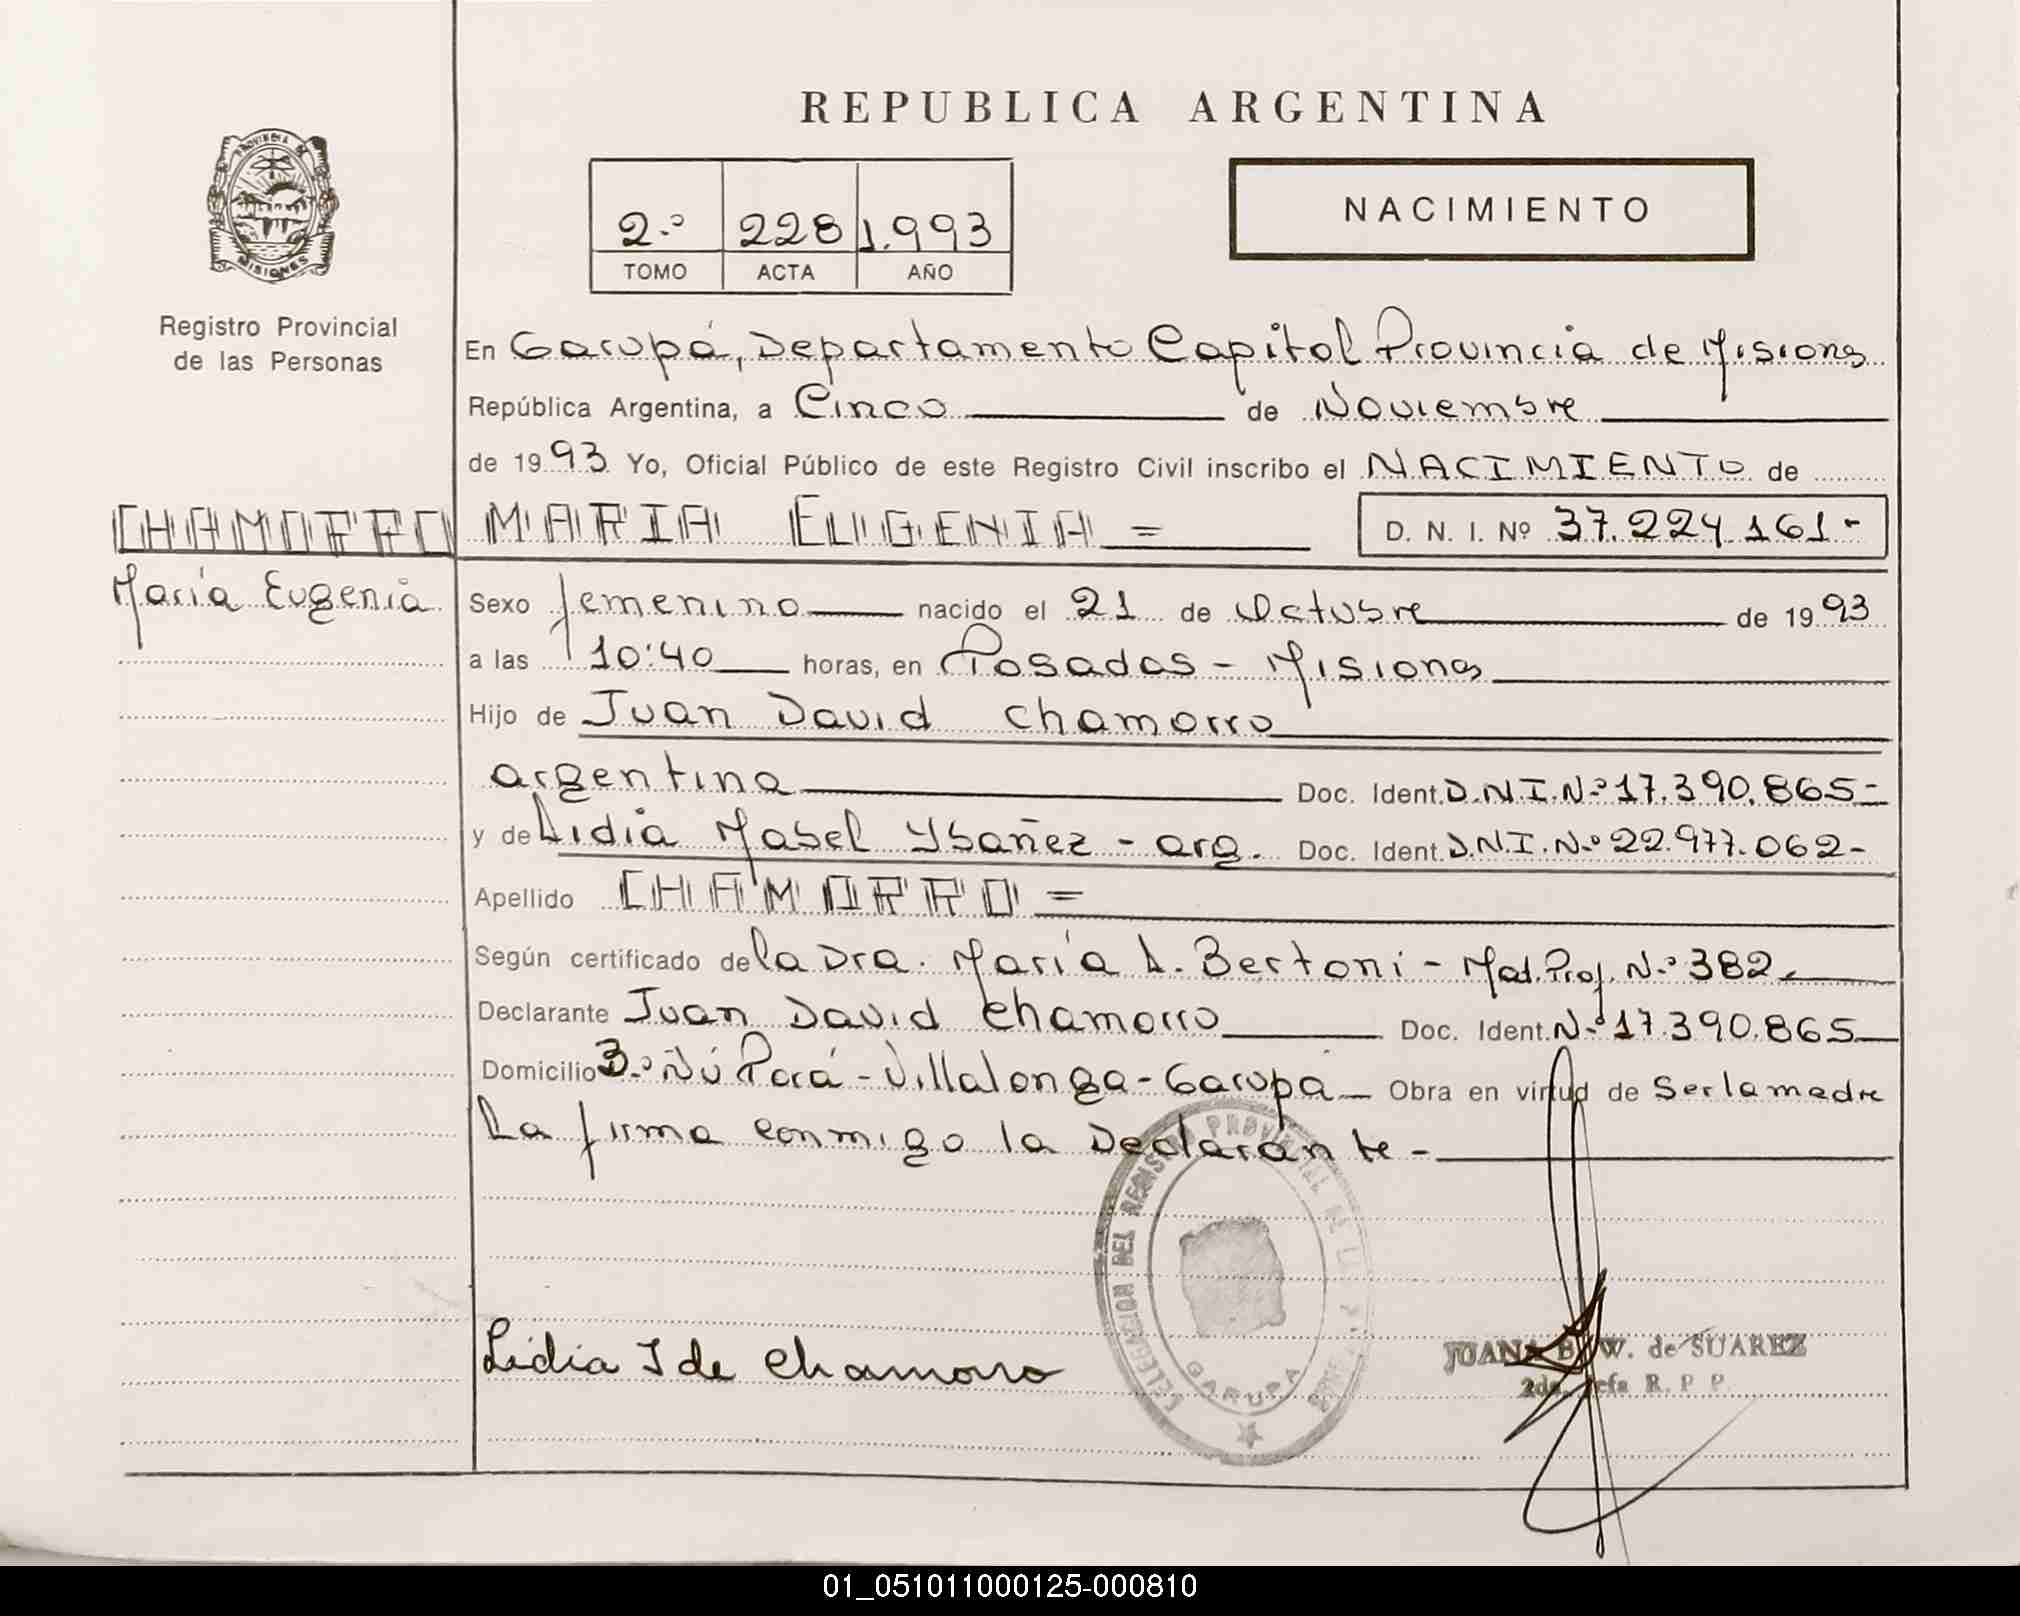 REPUBLICA ARGENTINA
PROVINCIA DE
MISIONES
Registro Provincial
de las Personas
2.º 228 1.993
TOMO ACTA AÑO
NACIMIENTO
En Garupá, Departamento Capital Provincia de Misiones
República Argentina, a Cinco de Noviembre
de 1993 Yo, Oficial Público de este Registro Civil inscribo el NACIMIENTO de
CHAMORRO MARIA EUGENIA =
D. N. I. Nº 37.224.161-
María Eugenia
Sexo femenino nacido el 21 de Octubre de 1993
a las 10:40 horas, en Posadas - Misiones
Hijo de Juan David Chamorro
argentina Doc. Ident. D.N.I.N.º 17.390.865-
y de Lidia Mabel Ybañez - arg. Doc. Ident. D.N.I.N.º 22.977.062-
Apellido CHAMORRO =
Según certificado de la Dra. María A. Bertoni - Mat. Prof. N.º 382
Declarante Juan David Chamorro Doc. Ident. N.º 17.390.865
Domicilio B.º Ñú Porá - Villalonga - Garupá Obra en virtud de Ser la madre
La firma conmigo la Declarante -
DELEGACION DEL REGISTRO PROVINCIAL DE LAS PERSONAS
GARUPA
Lidia I de Chamorro
JUANA B. W. de SUAREZ
2da. Jefa R. P. P.
01_051011000125-000810